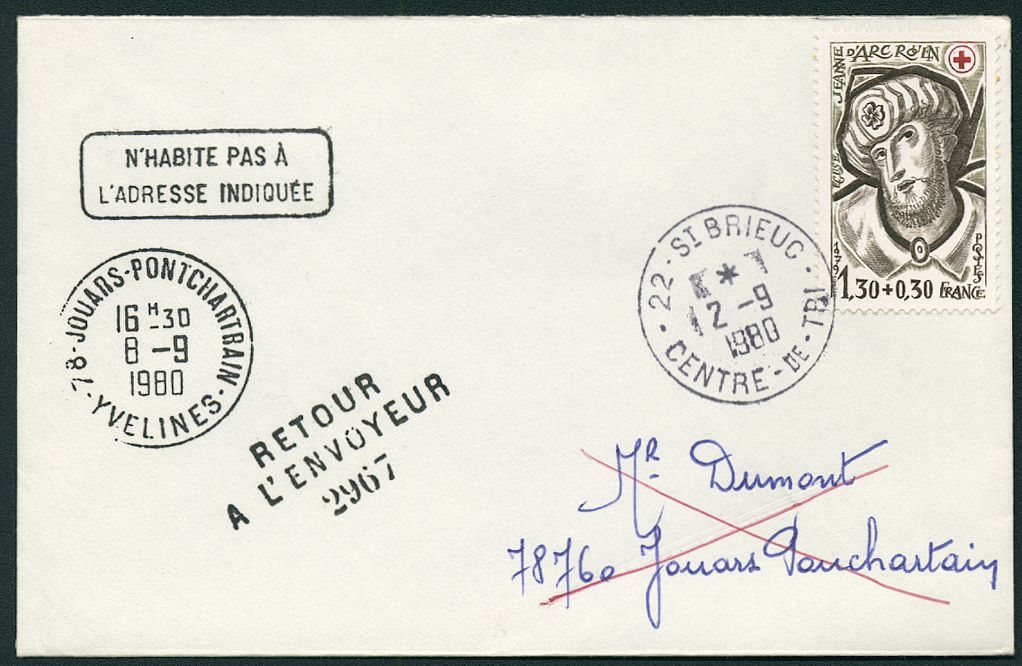 N'HABITE PAS À
L'ADRESSE INDIQUÉE
78-JOUARS-PONTCHARTRAIN
16 H -30
8 -9
1980
-YVELINES-
RETOUR
A L'ENVOYEUR
2967
22-ST BRIEUC-
*
2 -9
1980
CENTRE-DE-TRI
JEANNE D'ARC ROUEN
1979
POSTES
1,30+0,30 FRANCE
Mr Dumont
78760 Jouars Ponchartain